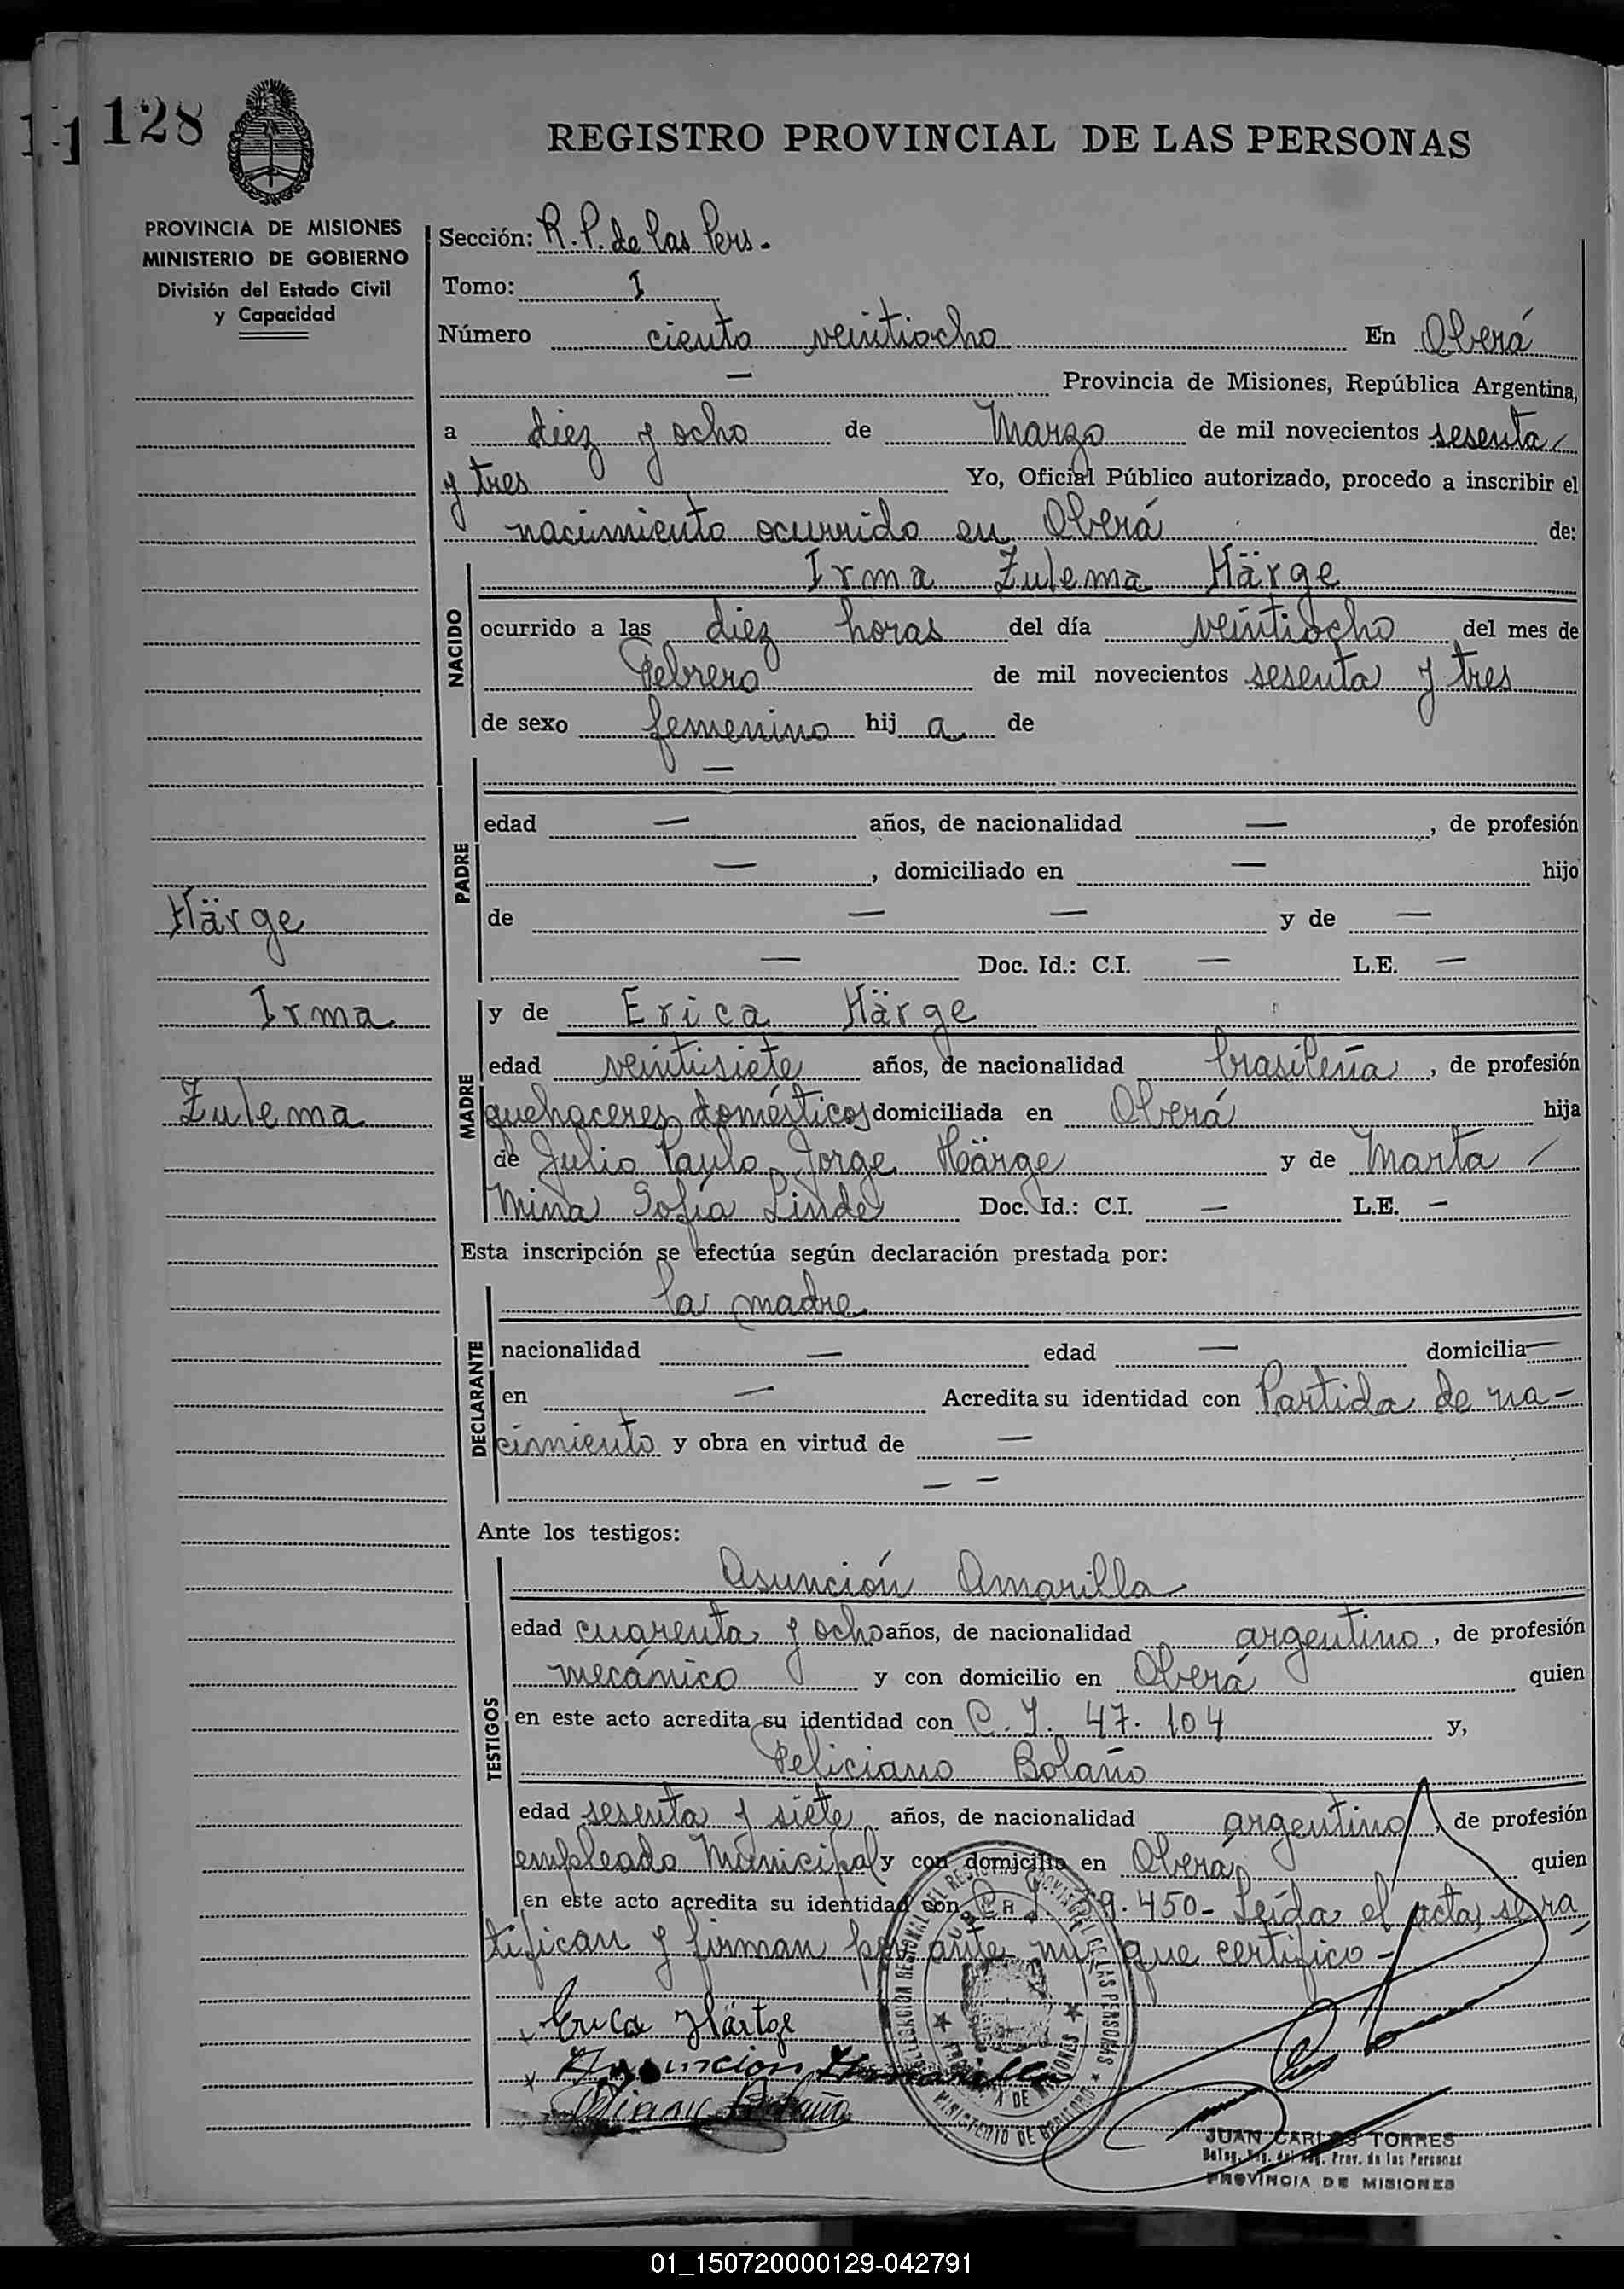 128
REGISTRO PROVINCIAL DE LAS PERSONAS
PROVINCIA DE MISIONES
MINISTERIO DE GOBIERNO
División del Estado Civil
y Capacidad
Härge
Irma
Zulema
Sección: R. P. de las Pers.
Tomo: I
Número ciento veintiocho En Oberá
— Provincia de Misiones, República Argentina,
a diez y ocho de Marzo de mil novecientos sesenta
y tres Yo, Oficial Público autorizado, procedo a inscribir el
nacimiento ocurrido en Oberá de:
NACIDO
Irma Zulema Härge
ocurrido a las diez horas del día veintiocho del mes de
Febrero de mil novecientos sesenta y tres
de sexo femenino hij a de
PADRE
—
edad — años, de nacionalidad —, de profesión
—, domiciliado en — hijo
de — — y de —
— Doc. Id.: C.I. — L.E. —
MADRE
y de Erica Härge
edad veintisiete años, de nacionalidad brasileña, de profesión
quehaceres domésticos domiciliada en Oberá hija
de Julio Paulo Jorge Härge y de Marta
Mina Sofía Linde Doc. Id.: C.I. — L.E. —
Esta inscripción se efectúa según declaración prestada por:
DECLARANTE
la madre
nacionalidad — edad — domicilia—
en — Acredita su identidad con Partida de na-
cimiento y obra en virtud de —
— —
Ante los testigos:
TESTIGOS
Asunción Amarilla
edad cuarenta y ocho años, de nacionalidad argentino, de profesión
mecánico y con domicilio en Oberá quien
en este acto acredita su identidad con C. I. 47.104 y,
Feliciano Bolaño
edad sesenta y siete años, de nacionalidad argentino, de profesión
empleado Municipal y con domicilio en Oberá quien
en este acto acredita su identidad con 9.450- Leída el acta, se ra
tifican y firman por ante mí, que certifico-
Erica Härtge
Asuncion Amarilla
Bolaño
MINISTERIO DE GOBIERNO
JUAN CARLOS TORRES
Deleg. Reg. del Reg. Prov. de las Personas
PROVINCIA DE MISIONES
01_150720000129-042791